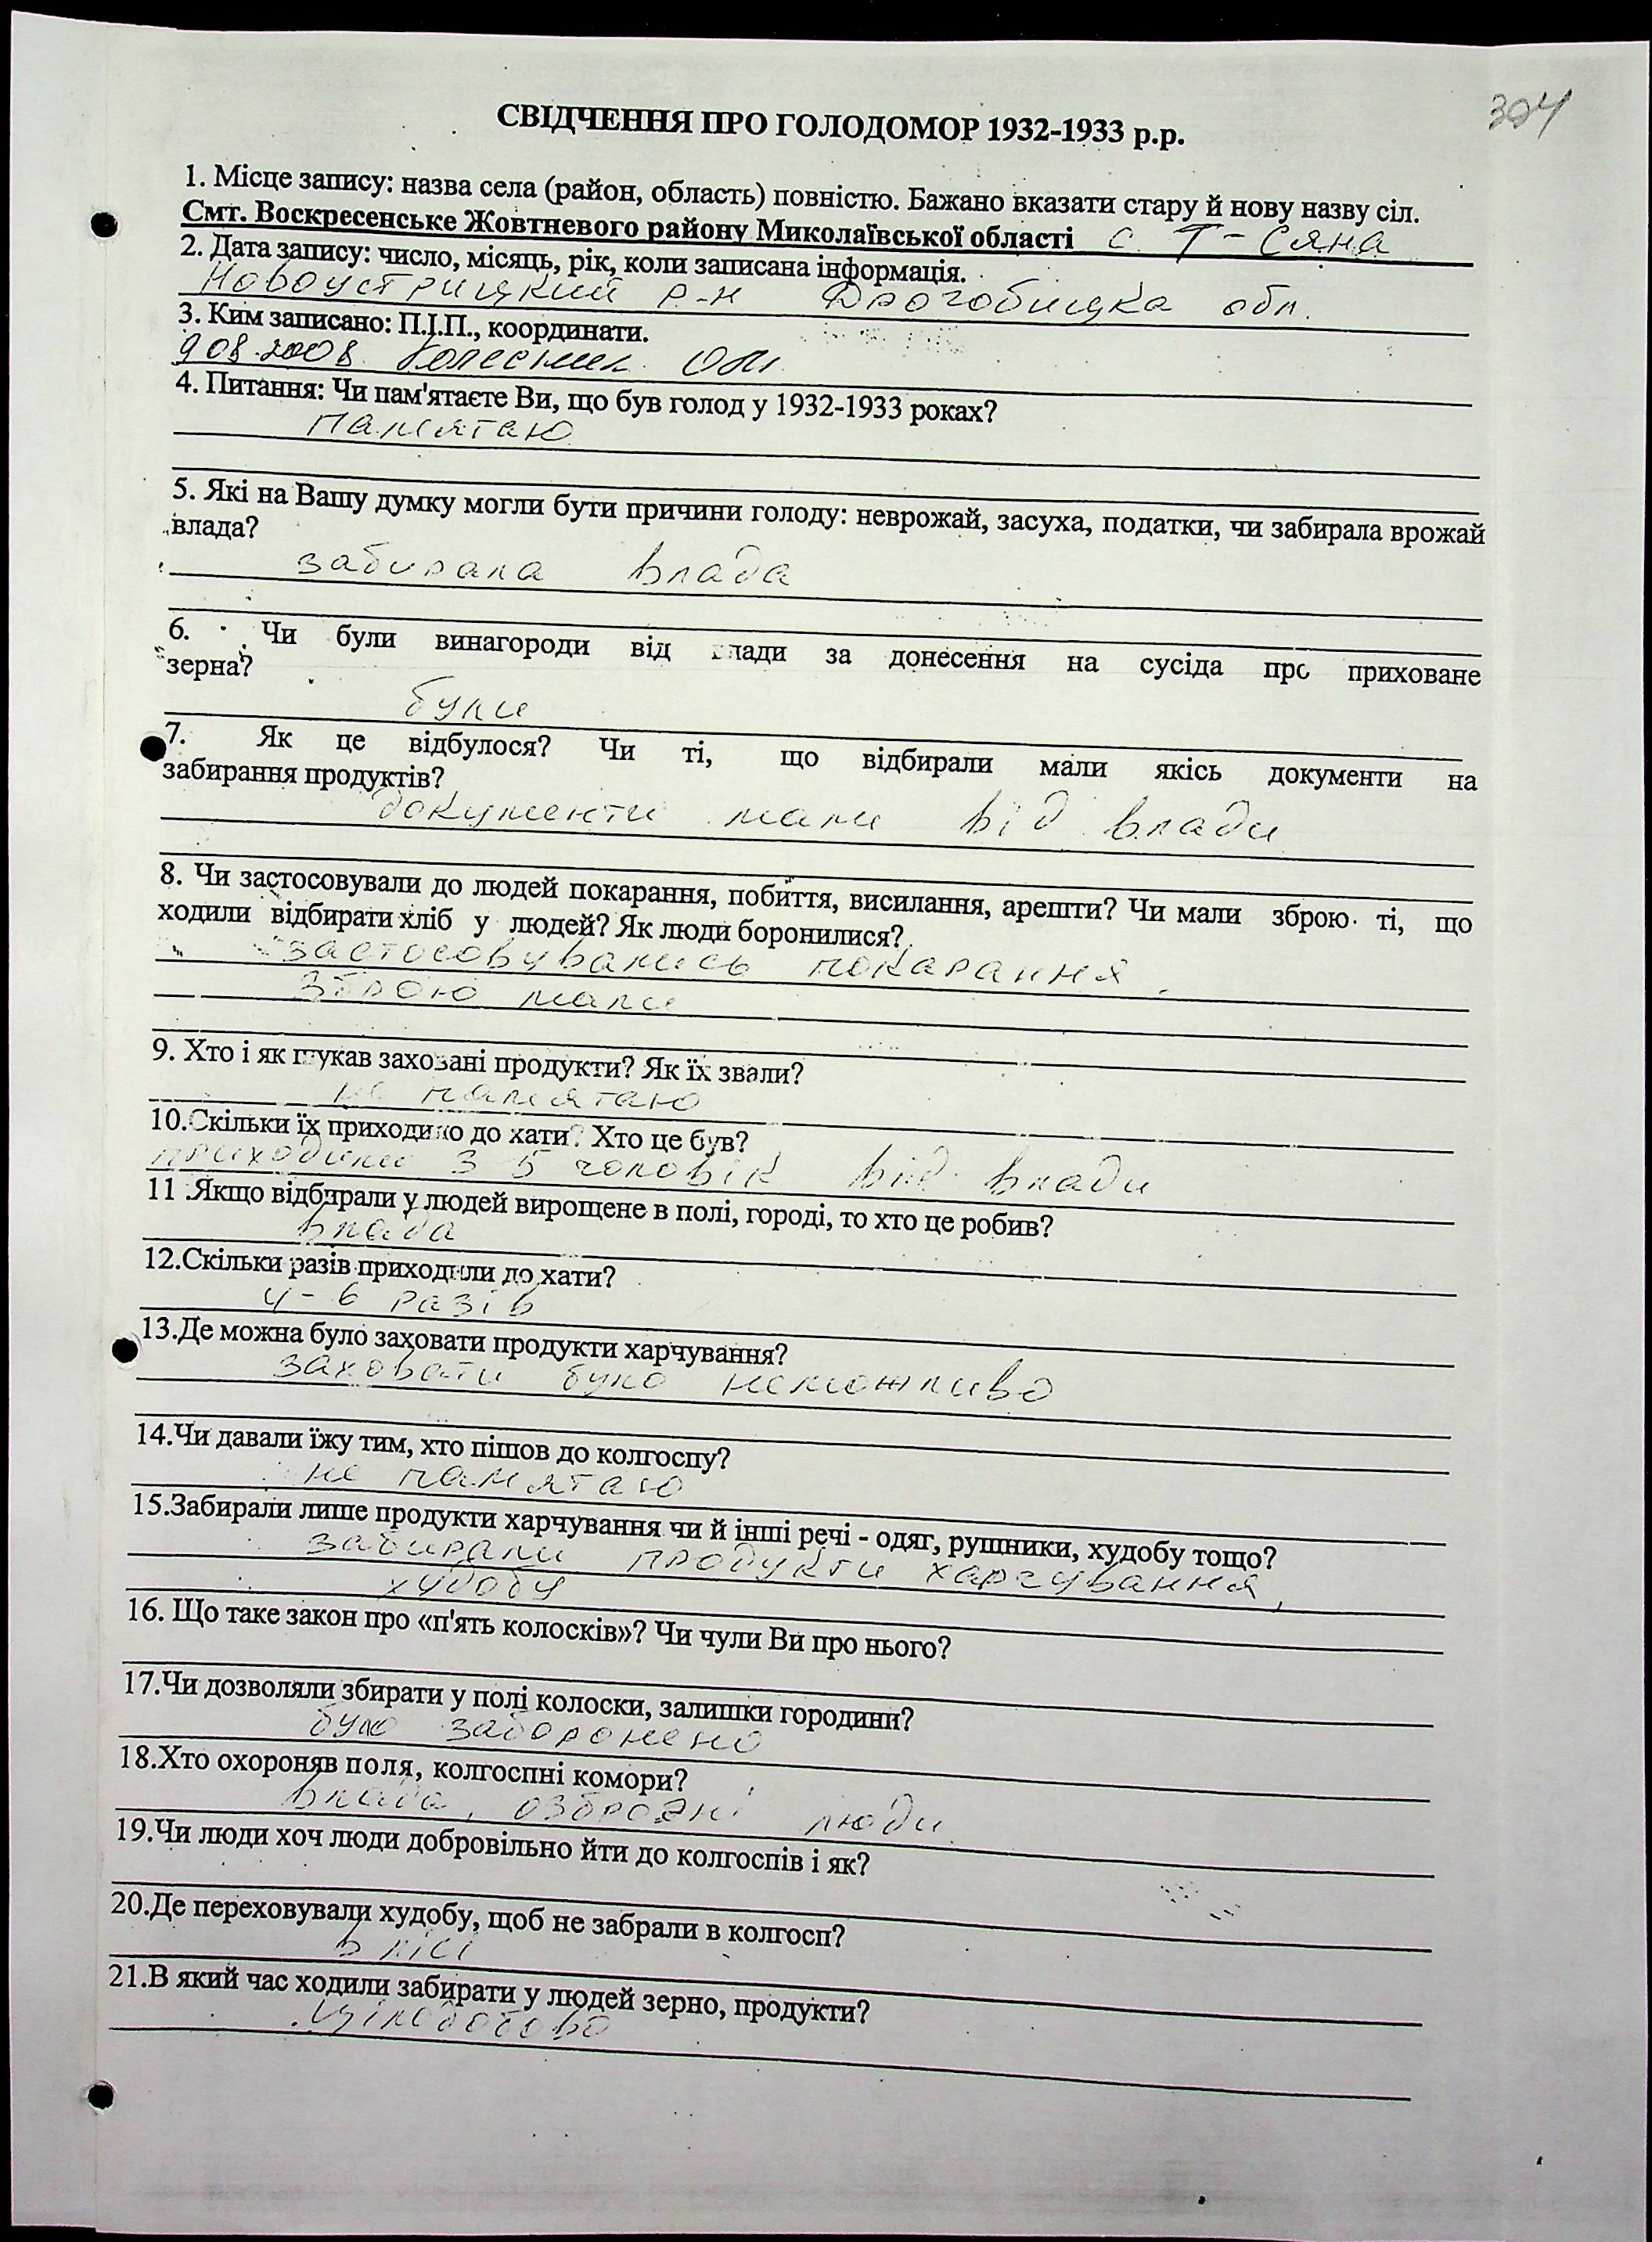 304
СВІДЧЕННЯ ПРО ГОЛОДОМОР 1932-1933 р.р.
1. Місце запису: назва села (район, область) повністю. Бажано вказати стару й нову назву сіл.
Смт. Воскресенське Жовтневого району Миколаївської області с. Т- Сяна
2. Дата запису: число, місяць, рік, коли записана інформація.
Новоустрицкий р-н Дрогобицка обл.
3. Ким записано: П.І.П., координати.
908.2008 Колесник
4. Питання: Чи пам'ятаєте Ви, що був голод у 1932-1933 роках?
памятаю
5. Які на Вашу думку могли бути причини голоду: неврожай, засуха, податки, чи забирала врожай
влада?
забирала влада
6. Чи були винагороди від влади за донесення на сусіда про приховане
зерна?
були
7. Як це відбулося? Чи ті, що відбирали мали якісь документи на
забирання продуктів?
документи мали від влади
8. Чи застосовували до людей покарання, побиття, висилання, арешти? Чи мали зброю ті, що
ходили відбирати хліб у людей? Як люди боронилися?
застосовувались покарання.
зброю мали
9. Хто і як шукав заховані продукти? Як їх звали?
не памятаю
10.Скільки їх приходило до хати? Хто це був?
приходили 3 5 чоловік від влади
11 .Якщо відбирали у людей вирощене в полі, городі, то хто це робив?
влада
12.Скільки разів приходили до хати?
4-6 разів
13.Де можна було заховати продукти харчування?
заховати було неможливо
14.Чи давали їжу тим, хто пішов до колгоспу?
не памятаю
15.Забирали лише продукти харчування чи й інші речі - одяг, рушники, худобу тощо?
забирали продукти харчування,
худобу
16. Що таке закон про «п'ять колосків»? Чи чули Ви про нього?
17.Чи дозволяли збирати у полі колоски, залишки городини?
було заборонено
18.Хто охороняв поля, колгоспні комори?
влада, озброєні люди.
19.Чи люди хоч люди добровільно йти до колгоспів і як?
20.Де переховували худобу, щоб не забрали в колгосп?
в лісі
21.В який час ходили забирати у людей зерно, продукти?
цілодобово